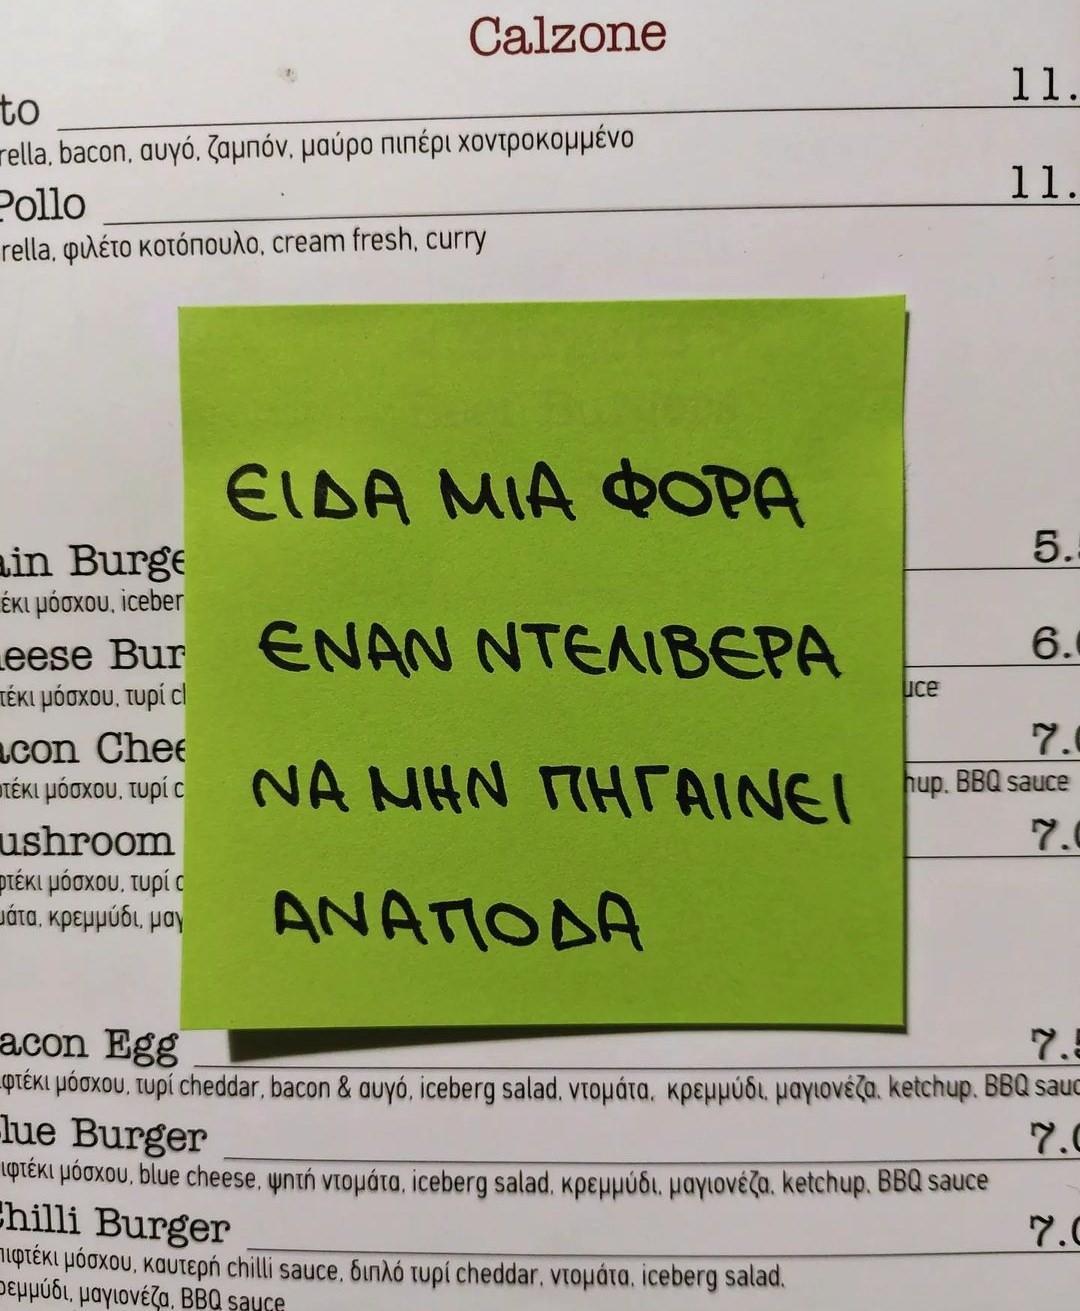 Calzone
11.
rella, bacon, αυγό, ζαμπόν, μαύρο πιπέρι χοντροκομμένο
Pollo 11.
rella, φιλέτο κοτόπουλο, cream fresh, curry
ΕΙΔΑ ΜΙΑ ΦΟΡΑ
ΕΝΑΝ ΝΤΕΛΙΒΕΡΑ
ΝΑ ΜΗΝ ΠΗΓΑΙΝΕΙ
ΑΝΑΠΟΔΑ
ain Burge 5.5
έκι μόσχου, iceber
eese Bur 6.0
τέκι μόσχου, τυρί ch uce
acon Chee 7.0
τέκι μόσχου, τυρί c hup, BBQ sauce
ushroom 7.0
φτέκι μόσχου, τυρί c
μάτα, κρεμμύδι, μαγ
acon Egg 7.5
φτέκι μόσχου, τυρί cheddar, bacon & αυγό, iceberg salad, ντομάτα, κρεμμύδι, μαγιονέζα, ketchup, BBQ sauc
lue Burger 7.0
ιφτέκι μόσχου, blue cheese, ψητή ντομάτα, iceberg salad, κρεμμύδι, μαγιονέζα, ketchup, BBQ sauce
Chilli Burger 7.0
πιφτέκι μόσχου, καυτερή chilli sauce, διπλό τυρί cheddar, ντομάτα, iceberg salad,
ρεμμύδι, μαγιονέζα, BBQ sauce